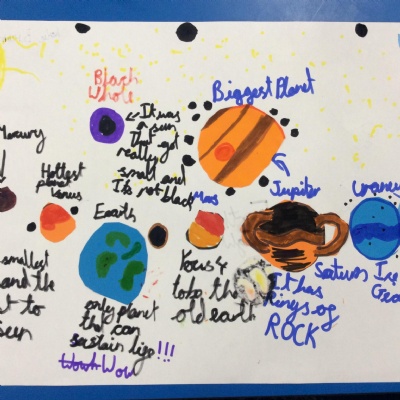 Black
Whole
It was
a sun
That got
really
small and
It's not black
Biggest Planet
Mercury
Hottest
planet
Venus
Eearth
Mars
Jupiter
Uranus
smallest
and the
t to
sun
only planet
that can
sastain lige!!!
Wowh Wow
the
old earth
Saturn
It has
rings of
ROCK
Ice